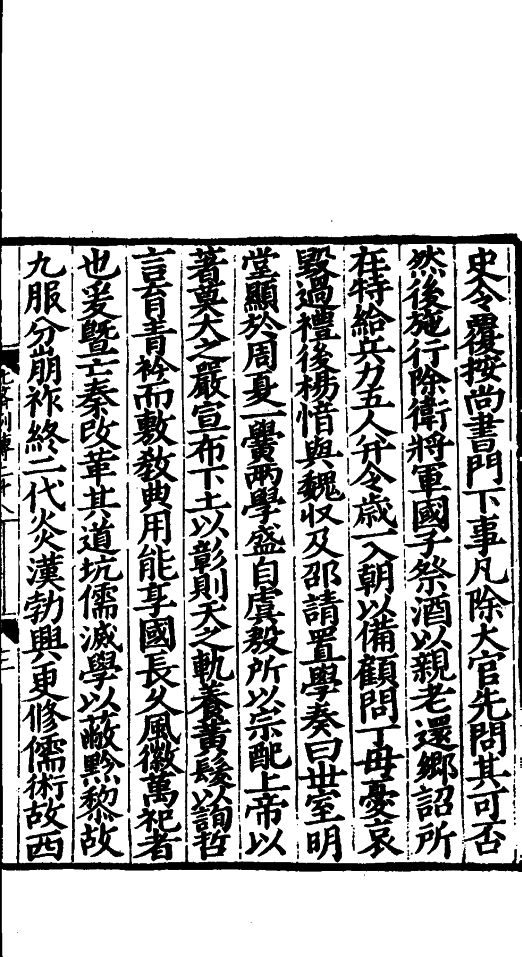 史令覆按尚書門下事凡除大官先問其可否
然後施行除衛將軍國子祭酒以親老還郷詔所
在特給兵力五人并令歲一入朝以備顧問丁母憂哀
毀過禮後楊愔與魏收及邵請置學奏曰世室明
堂顯於周夏一黌兩學盛自虞殷所以宗配上帝以
著莫大之嚴宣布下土以彰則天之軌養黃髮以詢哲
言育青衿而敷敎典用能享國長久風徽萬祀者
也爰曁亡秦改革其道坑儒滅學以蔽黔黎故
九服分崩祚終二代炎漢勃興更修儒術故西